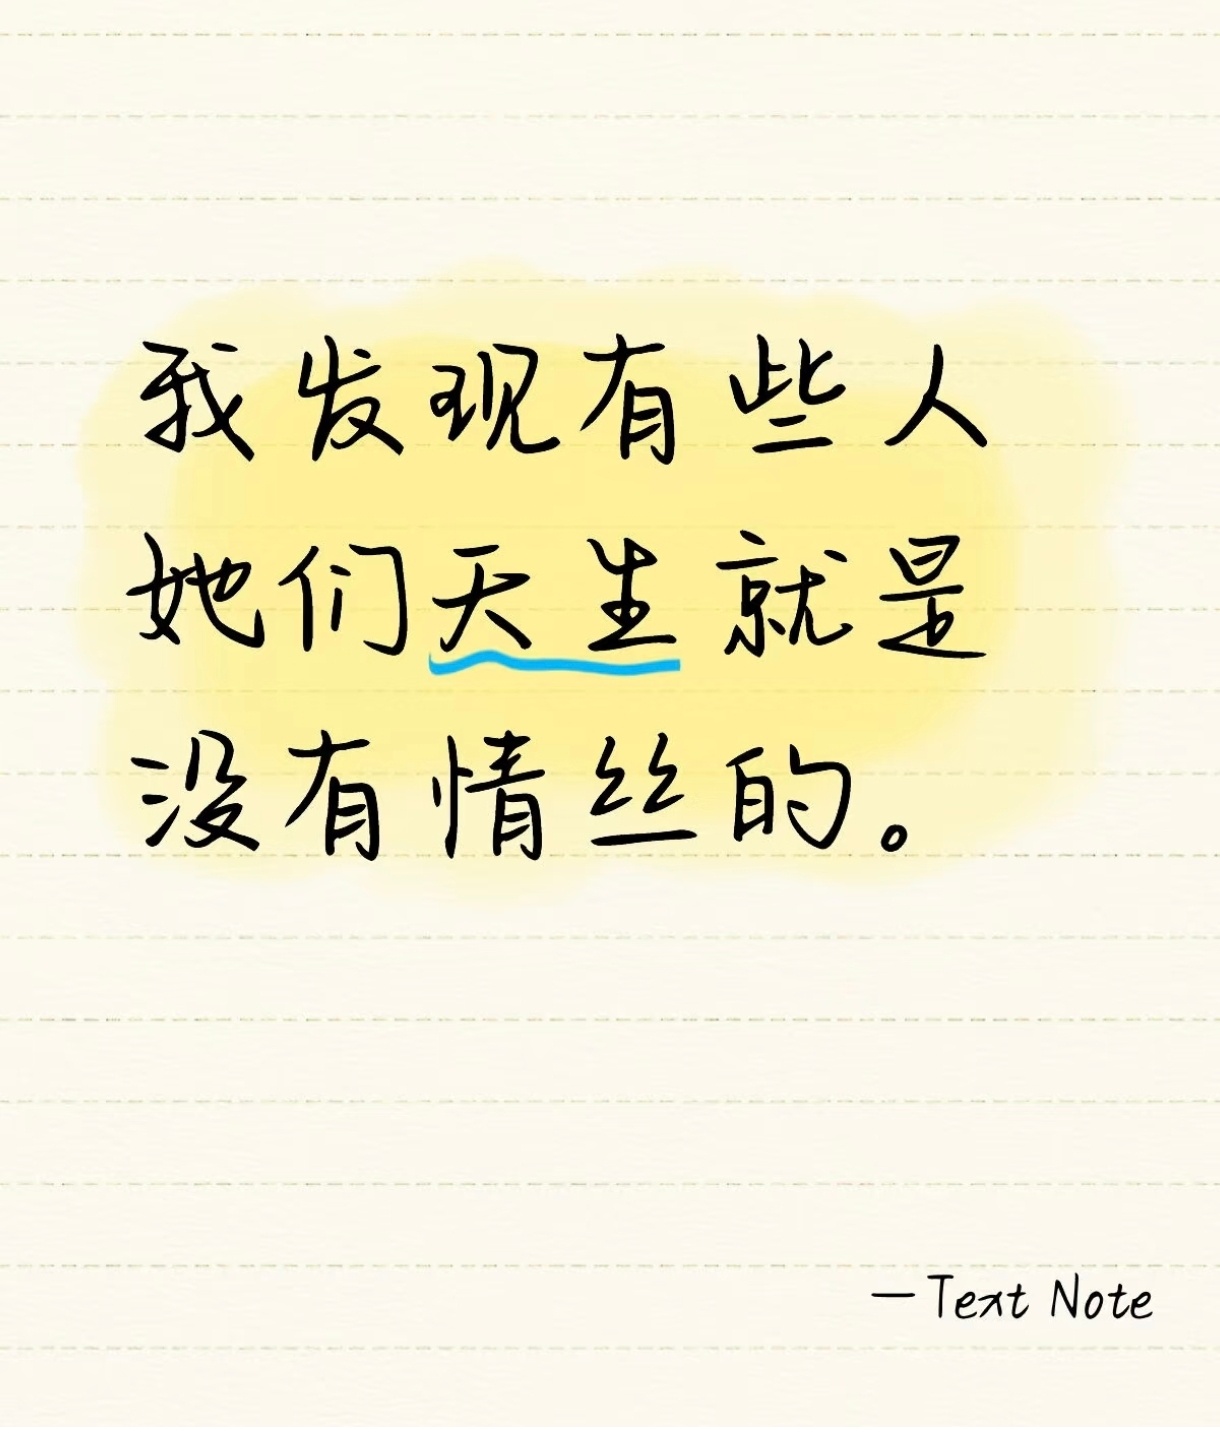 我发现有些人
她们天生就是
没有情丝的。
—Text Note